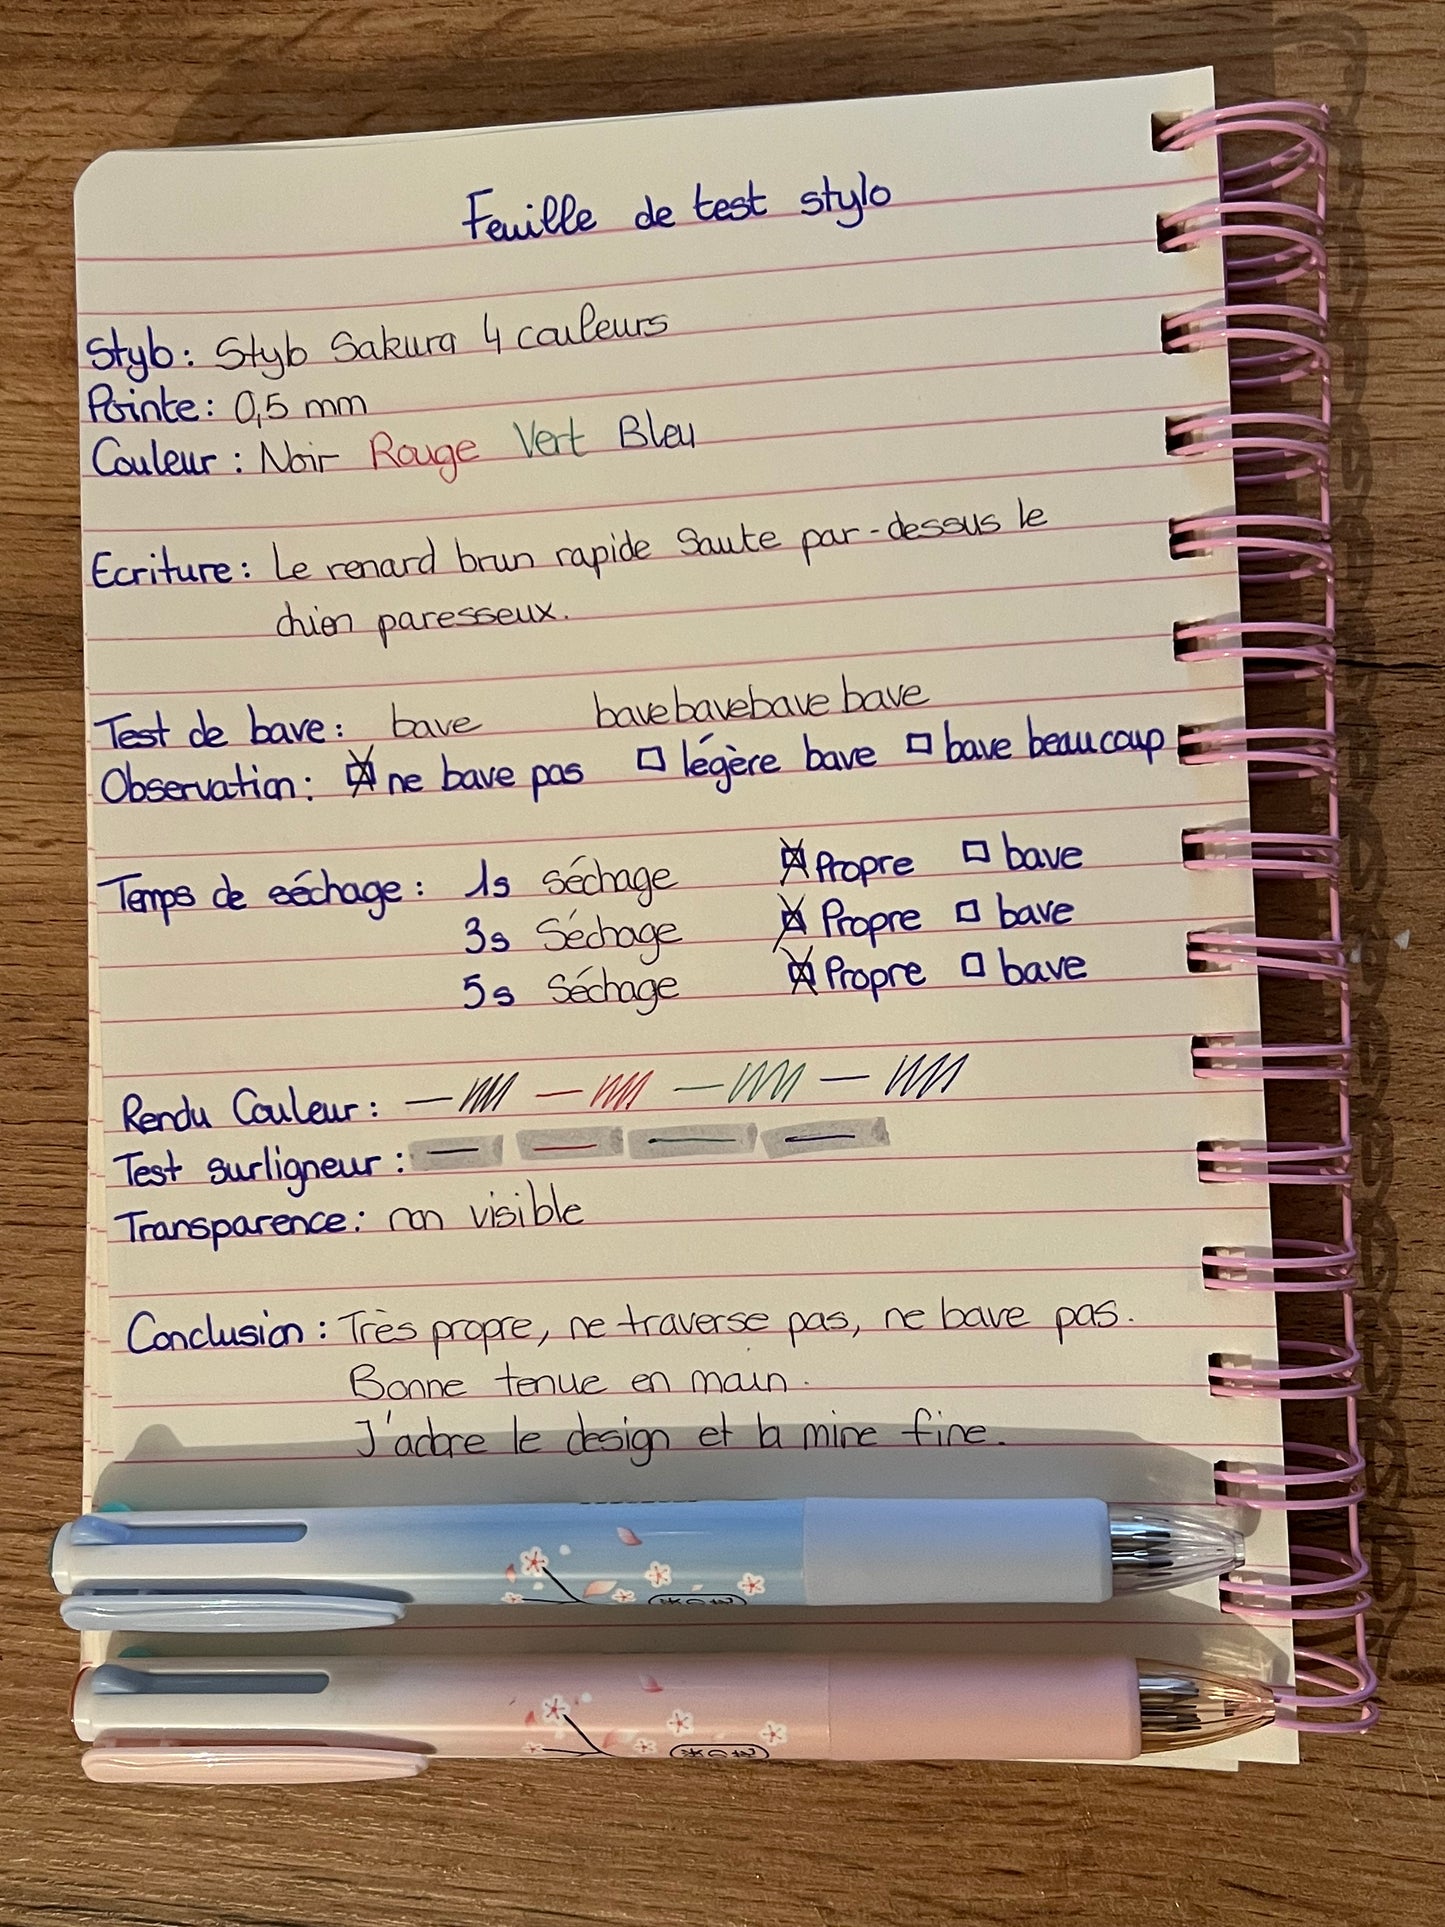 Feuille de test stylo
Stylo : Stylo Sakura 4 couleurs
Pointe : 0,5 mm
Couleur : Noir Rouge Vert Bleu
Ecriture : Le renard brun rapide saute par-dessus le
chien paresseux.
Test de bave : bave bavebavebavebave
Observation : ☒ ne bave pas ☐ légère bave ☐ bave beaucoup
Temps de séchage : 1s séchage ☒ Propre ☐ bave
3s Séchage ☒ Propre ☐ bave
5s Séchage ☒ Propre ☐ bave
Rendu Couleur :
Test surligneur :
Transparence : non visible
Conclusion : Très propre, ne traverse pas, ne bave pas.
Bonne tenue en main.
J'adore le design et la mine fine.